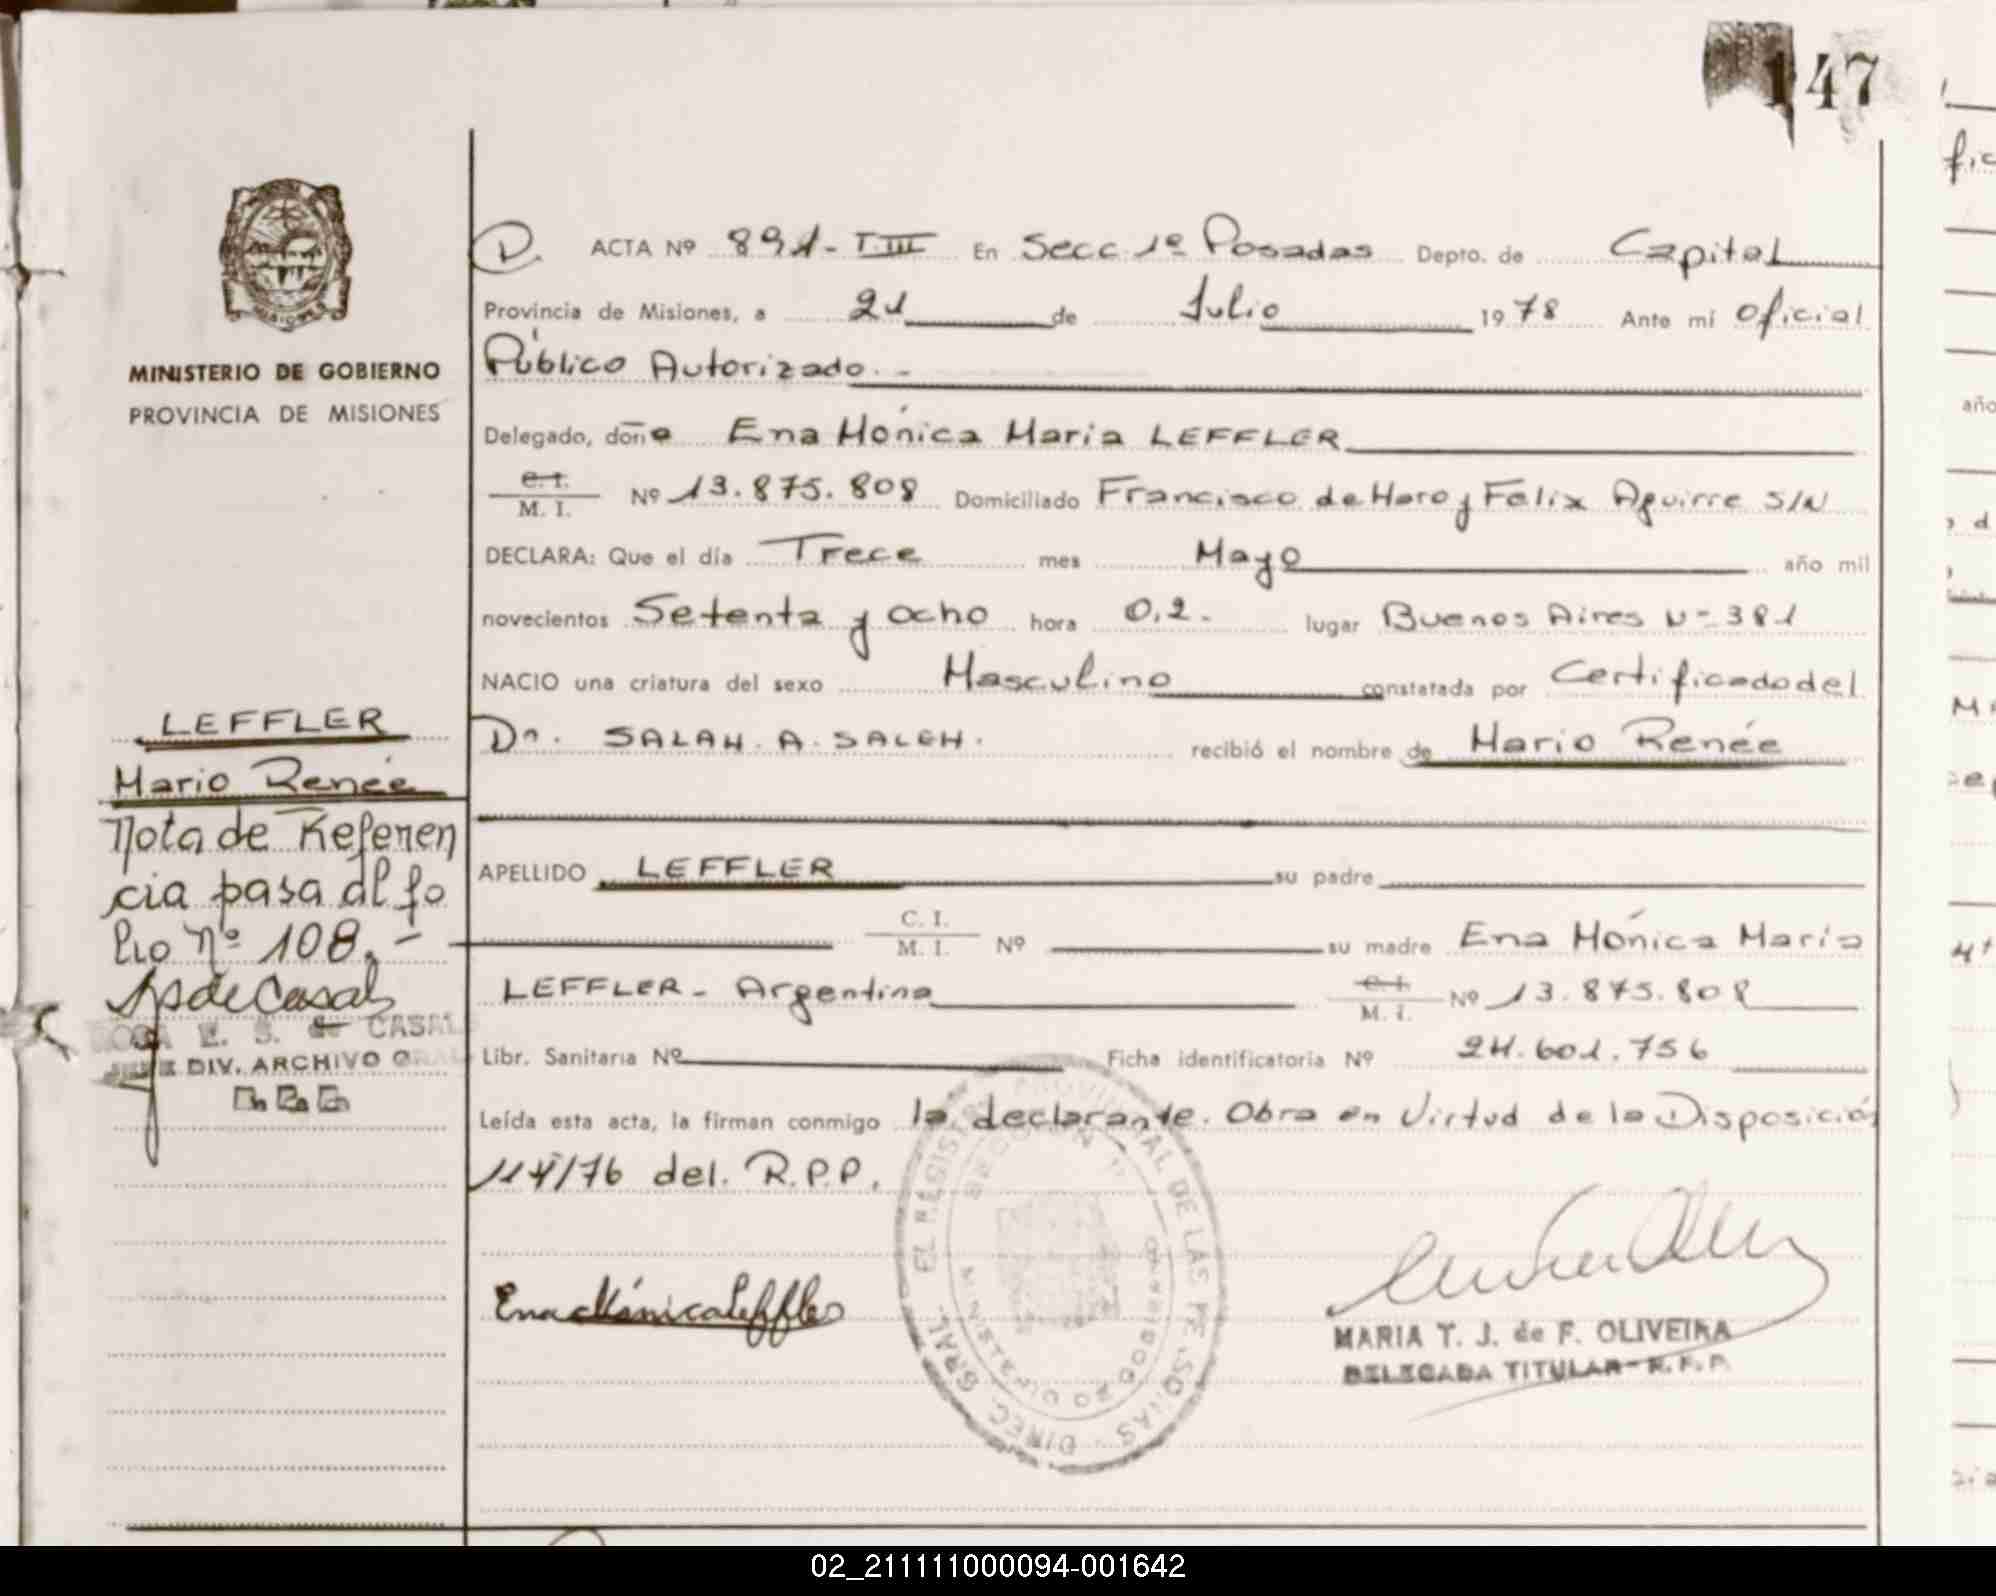 147
MINISTERIO DE GOBIERNO
PROVINCIA DE MISIONES
D. ACTA Nº 891 - T.III En Secc. 1º Posadas Depto. de Capital
Provincia de Misiones, a 21 de Julio 1978 Ante mi Oficial
Público Autorizado. -
Delegado, doña Ena Mónica Maria LEFFLER
C. I.
M. I. Nº 13.875.808 Domiciliado Francisco de Haro y Felix Aguirre S/N
DECLARA: Que el día Trece mes Mayo año mil
novecientos Setenta y ocho hora 0,2. lugar Buenos Aires Nº 381
NACIO una criatura del sexo Masculino constatada por Certificado del
Dr. SALAH. A. SALEH. recibió el nombre de Mario Renée
APELLIDO LEFFLER su padre
C. I.
M. I. Nº su madre Ena Mónica Maria
LEFFLER - Argentina C. I.
M. I. Nº 13.875.808
Libr. Sanitaria Nº Ficha identificatoria Nº 24.601.756
Leída esta acta, la firman conmigo la declarante. Obra en Virtud de la Disposición
114/76 del. R.P.P.
LEFFLER
Mario Renée
Nota de Referen
cia pasa al fo
lio nº 108. -
de Casal
E. S. de CASAL
JEFE DIV. ARCHIVO GRAL
Ena Mónica Leffler
EL REGISTRO PROVINCIAL DE LAS PERSONAS - DIREC. GRAL.
MINISTERIO DE GOBIERNO
MARIA T. J. de F. OLIVEIRA
DELEGADA TITULAR - R.P.P.
02_211111000094-001642